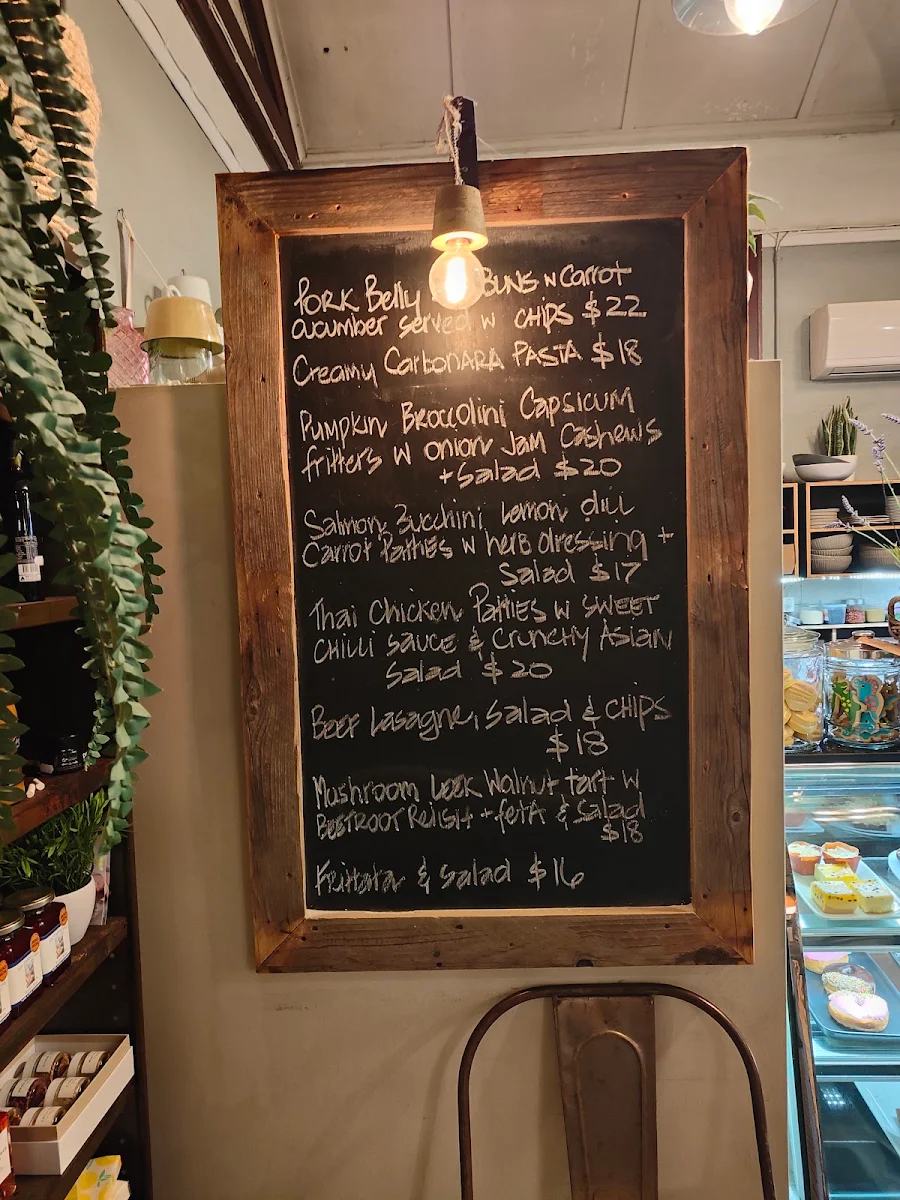 Pork Belly BUNS w Carrot
cucumber served w CHIPS $22
Creamy Carbonara PASTA $18
Pumpkin Broccolini Capsicum
fritters w onion Jam Cashews
+ Salad $20
Salmon Zucchini Lemon dill
Carrot Patties w herb dressing +
Salad $17
Thai Chicken Patties w SWEET
CHILLI sauce & Crunchy Asian
Salad $20
Beef Lasagne, Salad & CHIPS
$18
Mushroom Leek Walnut tart w
Beetroot Relish + feta & Salad
$18
Frittata & Salad $16